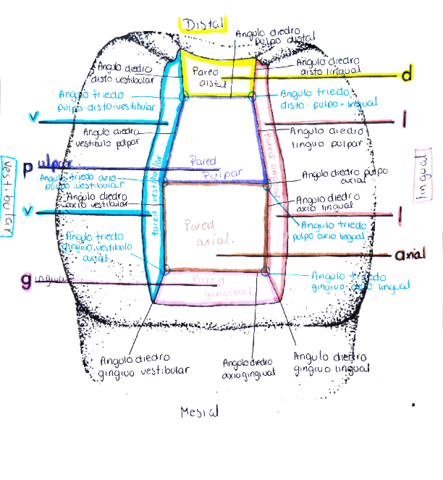 Distal
Angulo diedro
pulpo distal
Angulo diedro
disto vestibular
Angulo diedro
disto lingual
Pared
distal
d
Angulo triedo
pulpo-disto-vestibular
Angulo triedo
disto-pulpo-lingual
v
l
Angulo diedro
vestibulo pulpar
Angulo diedro
linguo pulpar
vestibular
lingual
pulpar
Pared
Pulpar
Angulo triedo axio
pulpo vestibular
Angulo diedro pulpo
axial
Angulo diedro
axio vestibular
Angulo diedro
axio lingual
v
l
Pared vestibular
Pared
axial.
Angulo triedo
gingivo vestibulo
axial
Angulo triedo
pulpo axio lingual
axial
gingival
gingival
Angulo triedo
gingivo axio lingual
Angolo diedro
gingivo vestibular
Angolo diedro
axiogingival
Angulo diedro
gingivo lingual
Mesial